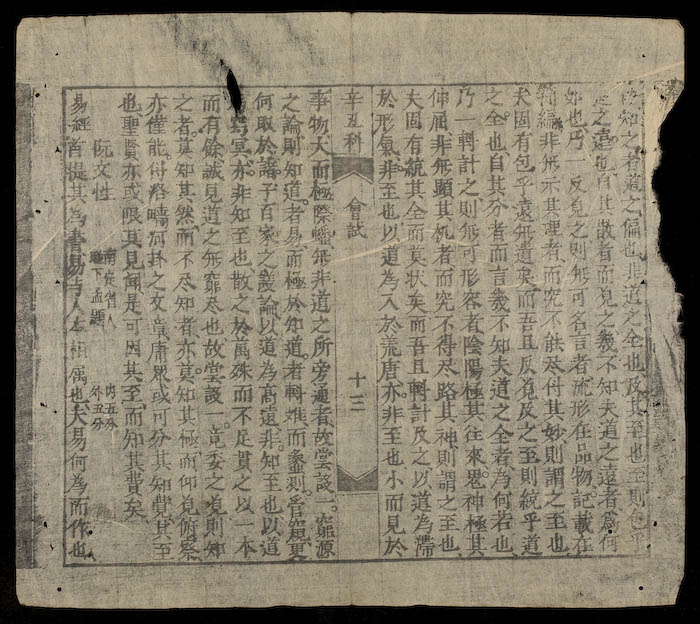 知之者道之偏也非道之全也及其至也至則包乎
之遠也自其散者而見之幾不知夫道之遠者為何
如也巧一反見之則無可名言者流形在品物記載在
簡編非無示其理者而究不能尽付其妙則謂之至也
夫固有包乎遠無遺矣而吾且反覓及之至則統乎道
之全也自其分者而言幾不知夫道之全者為何若也
巧一轉計之則無可形容者陰陽極其往來鬼神極其
伸屈非無顯其机者而究不得尽路其神則謂之至也
夫固有統其全而莫状矣而吾且轉計及之以道為滯
於形氣非至也以道為入於荒唐亦非至也小而見於
辛丑科 會試 十三
事物大而極際蟠無非道之所旁通者故尝設一窮源
之論則知道者易而極於知道者轉难而蠡測管窺更
何取於諸子百家之議論以道為高遠非知至也以道
窈冥亦非知至也散之於萬殊而不足貫之以一本
而有餘誠見道之無窮尽也故尝設一竟委之見則知
之者莫知其然而不尽知者亦莫知其極而仰覓俯察
亦僅能供洛疇河卦之文章庸眾或可分其知覺其至
也聖賢亦或限其見聞是可因其至而知其費矣
阮文性 南定省人 下孟題 內五分 外五分
易經首提其為書易與人本相属也夫易何為而作也